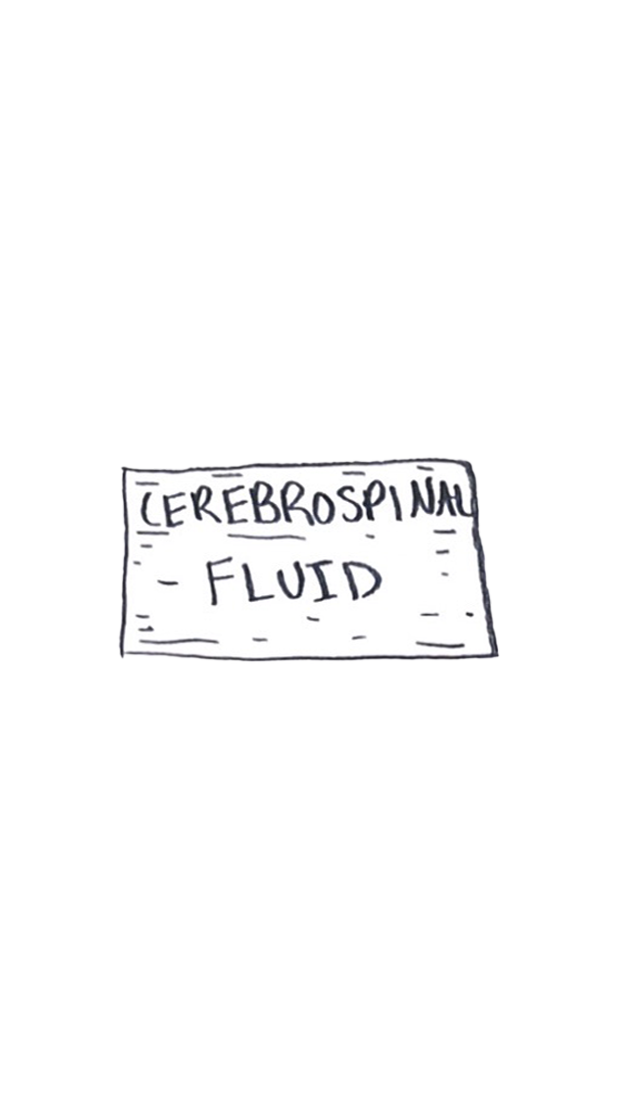 CEREBROSPINAL
FLUID